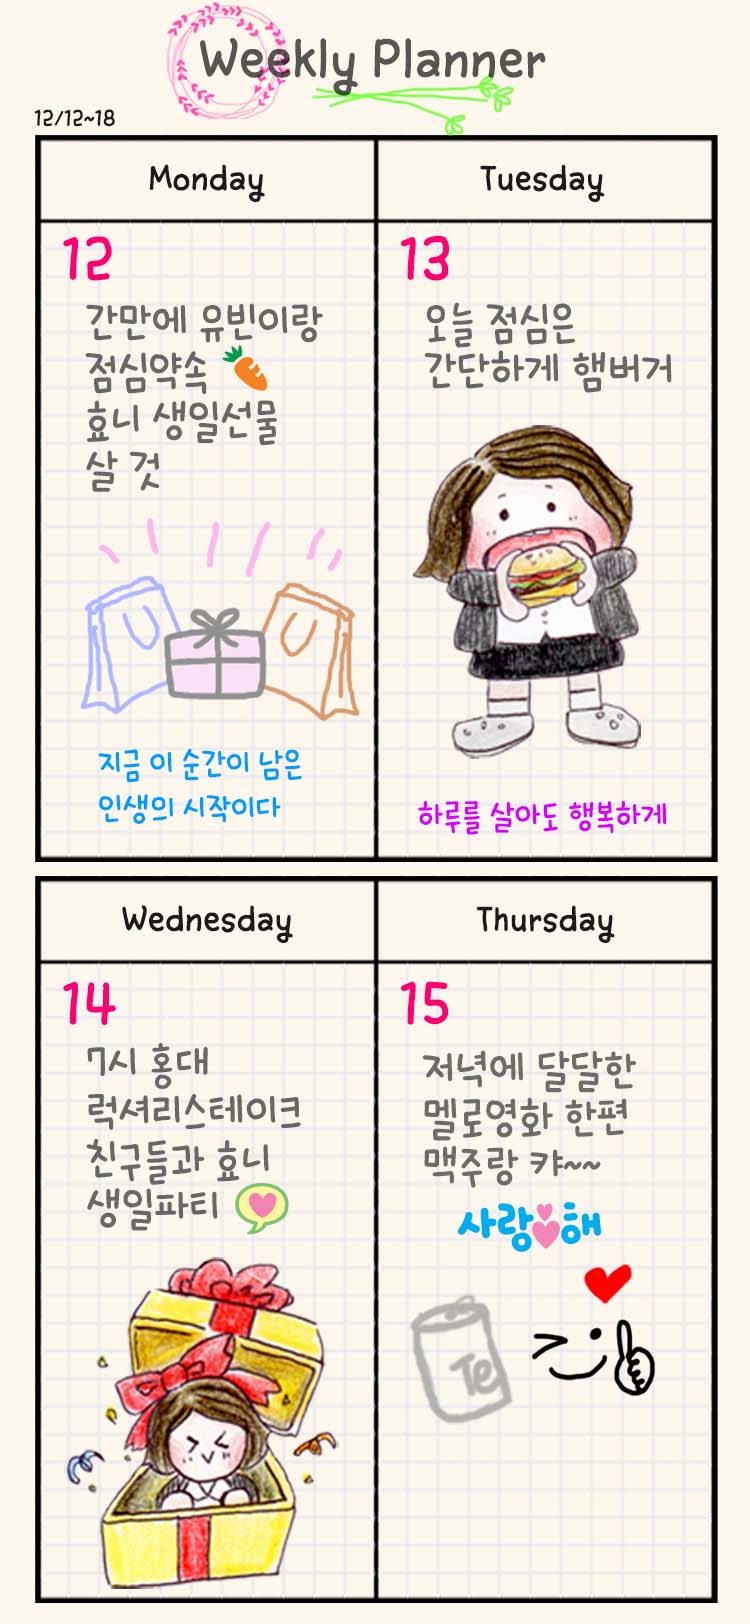 Weekly Planner
12/12~18
Monday
Tuesday
12
간만에 유빈이랑
점심약속
효니 생일선물
살 것
지금 이 순간이 남은
인생의 시작이다
13
오늘 점심은
간단하게 햄버거
하루를 살아도 행복하게
Wednesday
Thursday
14
7시 홍대
럭셔리스테이크
친구들과 효니
생일파티
15
저녁에 달달한
멜로영화 한편
맥주랑 캬~~
사랑해
Te